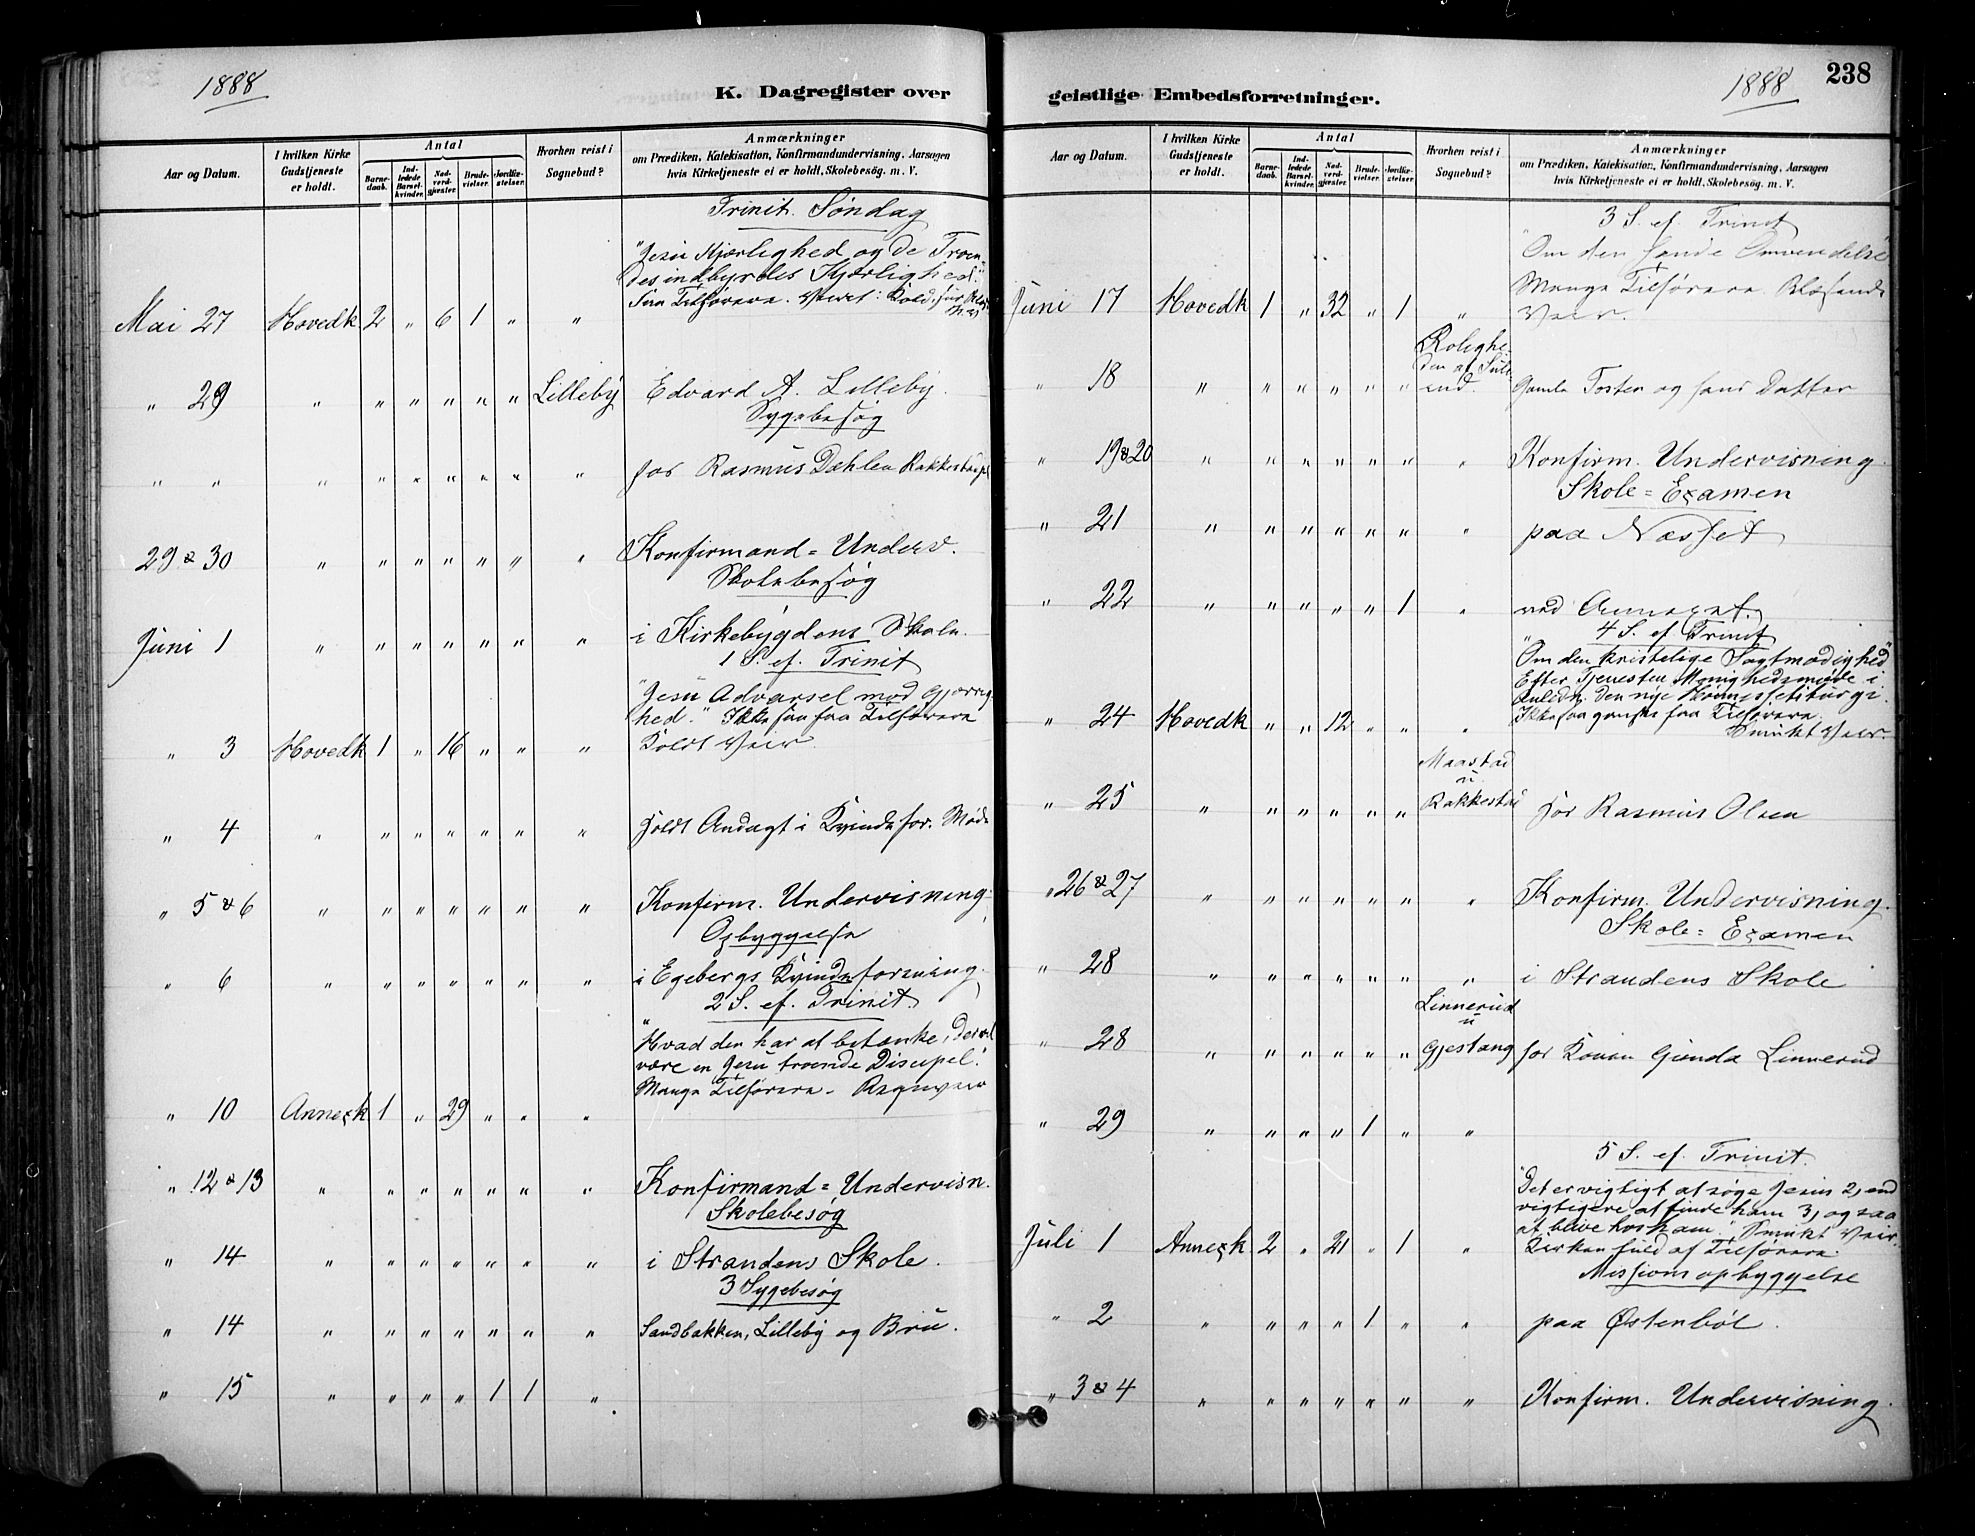 1888
K. Dagregister over
Aar og Datum.
I hvilken Kirke Gudstjeneste er holdt.
Antal
Barnedaab.
Indledede Barselkvinder.
Nadverdgjæster.
Brudevielser.
Jordfæstelser.
Hvorhen reist i Sognebud?
Anmærkninger
om Prædiken, Katekisation, Konfirmandundervisning, Aarsagen
hvis Kirketjeneste ei er holdt, Skolebesøg. m. V.
Trinit. Søndag
"Jesu Kjærlighed og de Troen-
des indbyrdes Kjærlighed."
Faa Tilhørere. Veiret: Kold,
Mai 27 Hovedk 2 " 6 1 " "
" 29 " " " " " " Lilleby Edvard A. Lilleby.
Sygebesøg
" " " " " " " " " hos Rasmus Dæhlen Rakkestad
29 & 30 " " " " " " " Konfirmand = Underv.
Skolebesøg
Juni 1 " " " " " " " i Kirkebygdens Skole.
1 S. ef. Trinit
"Jesu Advarsel mod Gjerrig-
hed." Ikke saa faa Tilhørere
" 3 Hovedk 1 " 16 " " " Koldt Veir
" 4 " " " " " " " Holdt Andagt i Kvindefor. Møde
" 5 & 6 " " " " " " " Konfirm. Undervisning.
Opbyggelse
" 6 " " " " " " " i Egebergs Kvindeforening.
2 S. ef. Trinit.
"Hvad den har at betænke, der vil
være en Jesu troende Discipel."
Mange Tilhørere. Regnveir
" 10 Annexk 1 " 29 " " "
" 12 & 13 " " " " " " " Konfirmand = Undervisn.
Skolebesøg
" 14 " " " " " " " i Strandens Skole.
3 Sygebesøg
" 14 " " " " " " " Sandbakken, Lilleby og Bru.
" 15 " " " " 1 1 "
geistlige Embedsforretninger.
1888
238
Aar og Datum.
I hvilken Kirke Gudstjeneste er holdt.
Antal
Barnedaab.
Indledede Barselkvinder.
Nadverdgjæster.
Brudevielser.
Jordfæstelser.
Hvorhen reist i Sognebud?
Anmærkninger
om Prædiken, Katekisation, Konfirmandundervisning, Aarsagen
hvis Kirketjeneste ei er holdt, Skolebesøg. m. V.
3 S. ef. Trinit
"Om den sande Omvendelse"
Mange Tilhørere. Blæsende
Juni 17 Hovedk 1 " 32 " 1 " Veir.
Roligheden
" 18 " " " " " " Gamle Tosten og hans Datter
" 19 & 20 " " " " " " " Konfirm. Undervisning.
Skole = Examen
" 21 " " " " " " " paa Næsset
" 22 " " " " " 1 " ved Annexet.
4 S. ef. Trinit
"Om den kristelige Sagtmodighed"
Efter Tjenesten Menighedsmøde i
den nye
Ikke saa ganske faa Tilhørere
" 24 Hovedk " " 12 " " " Smukt Veir.
Maastad
u
" 25 " " " " " " Rakkestad hos Rasmus Olsen
" 26 & 27 " " " " " " " Konfirm. Undervisning.
Skole = Examen
" 28 " " " " " " " i Strandens Skole
Linnerud
u
" 28 " " " " " " Gjestang hos Konen Gunda Linnerud
" 29 " " " " 1 " "
5 S. ef. Trinit.
"Det er vigtigt at søge Jesus 2, end
vigtigere at finde ham 3, og saa
at blive hos ham." Smukt Veir.
Juli 1 Annexk 2 " 21 " 1 " Kirken fuld af Tilhørere.
Missionsopbyggelse
" 2 " " " " 1 " " paa Østenböl.
" 3 & 4 " " " " " " " Konfirm. Undervisning.